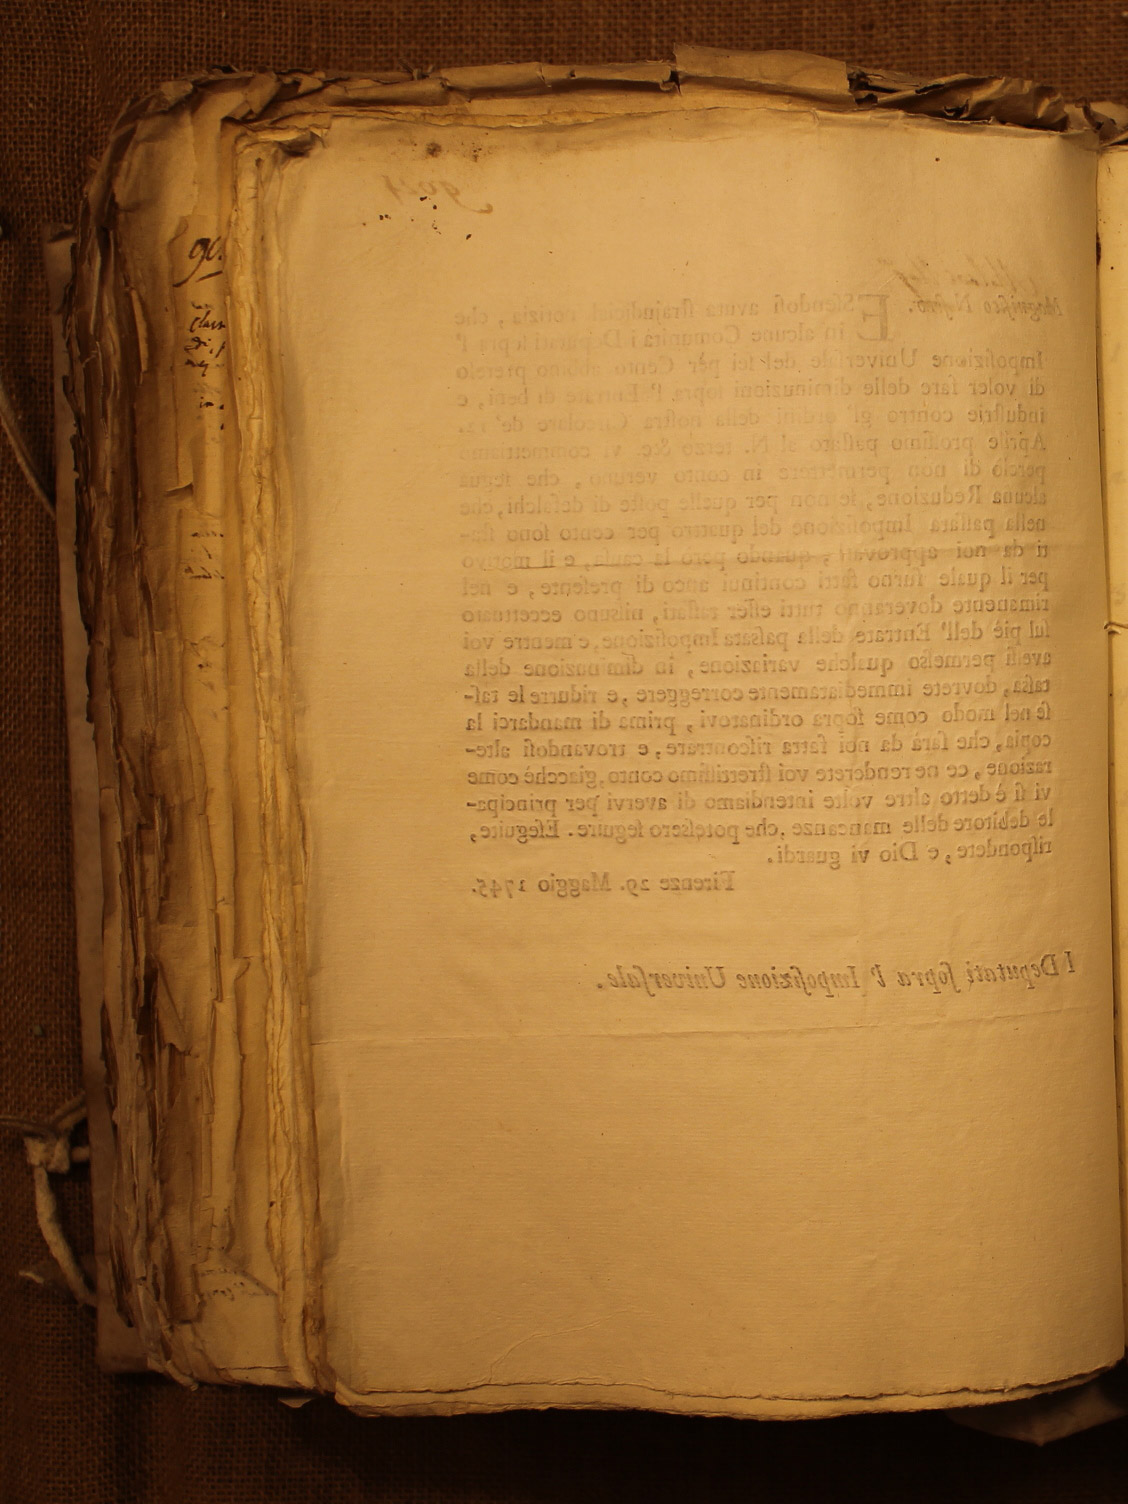 Magnifico Nostro.
Essendosi avuta straiudicial notizia, che
in alcune Comunità i Deputati sopra l'
Imposizione Universale del sei per Cento abbino preteso
di voler fare delle diminuzioni sopra l'Entrate di beni, e
industrie contro gl' ordini della nostra Circolare de' 12.
Aprile prossimo passato al N. terzo &c. vi commettiamo
perciò di non permettere in conto veruno, che segua
alcuna Reduzione, se non per quelle poste di defalchi, che
nella passata Imposizione del quattro per cento sono sta-
ti da noi approvati, quando però la causa, e il motivo
per il quale furno fatti continui anco di presente, e nel
rimanente doveranno tutti esser tassati, nissuno eccettuato
sul piè dell' Entrate della passata Imposizione, e mentre voi
avesti permesso qualche variazione, in diminuzione della
tassa, dovrete immediatamente correggere, e ridurre le tas-
se nel modo come sopra ordinatovi, prima di mandarci la
copia, che sarà da noi fatta riscontrare, e trovandosi alte-
razione, ce ne renderete voi strettissimo conto, giacchè come
vi si è detto altre volte intendiamo di avervi per principa-
le debitore delle mancanze, che potessero seguire. Eseguite,
rispondete, e Dio vi guardi.
Firenze 29. Maggio 1745.
I Deputati sopra l' Imposizione Universale.